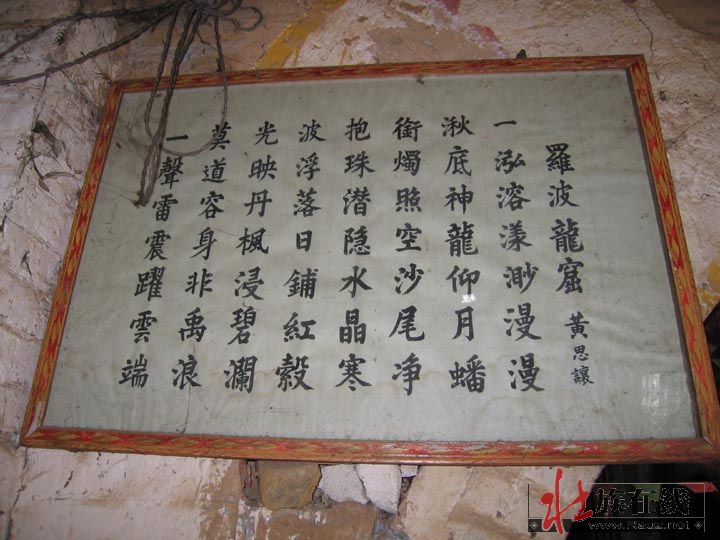 羅波龍窟 黃思讓
一泓溶漾渺漫漫
湫底神龍仰月蟠
銜燭照空沙尾净
抱珠潜隐水晶寒
波浮落日鋪紅縠
光映丹楓浸碧瀾
莫道容身非禹浪
一聲雷震躍雲端
壯族在线
www.Rauz.net